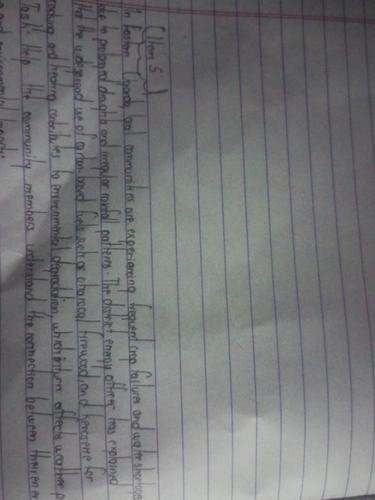 (Item 5)
In Eastern Uganda, local communities are experiencing frequent crop failures and water shortages
due to prolonged droughts and irregular rainfall patterns. The district energy officer has explained
that the widespread use of carbon-based fuels such as charcoal, firewood, and kerosene for
cooking and heating contributes to environmental degradation, which in turn affects weather p
Task: Help the community members understand the connection between their ener
and environmental